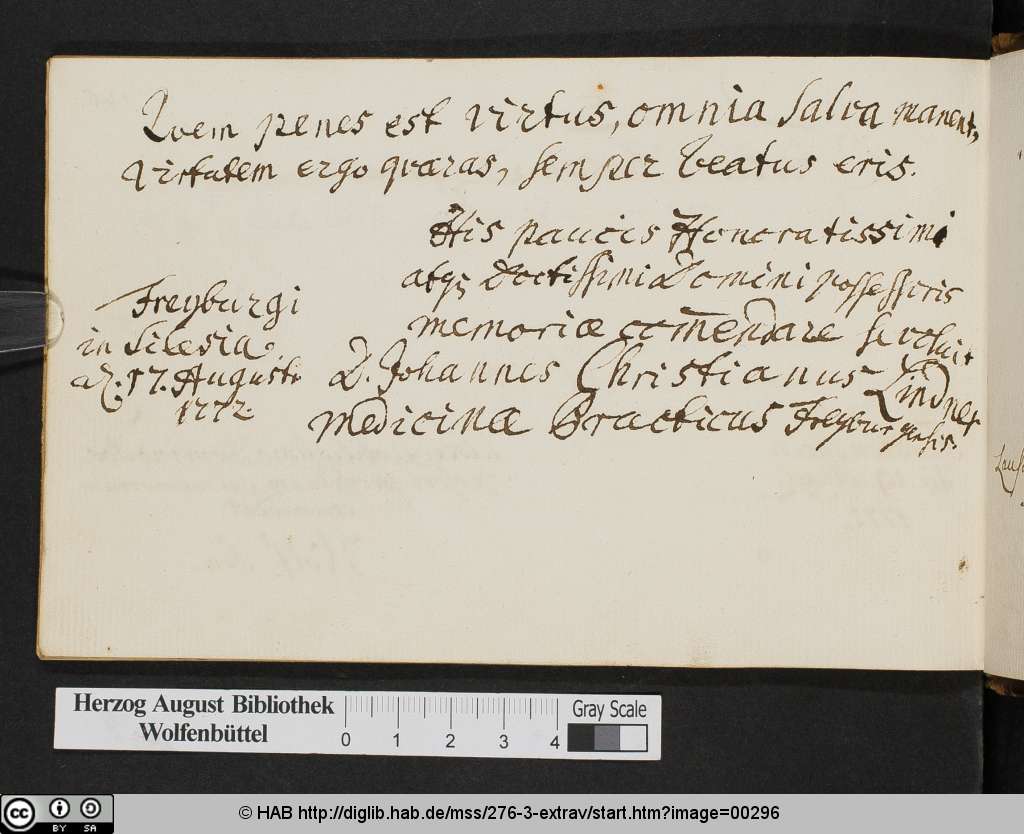 Quem penes est virtus, omnia salva manent,
virtutem ergo quæras, semper beatus eris.
His paucis Honoratissimi
atq; Doctissimi Domini possessoris
memoriæ com̄endare se voluit
D. Johannes Christianus Lindner
medicinæ Practicus Freyburgensis.
Freyburgi
in Silesia.
d. 17. Augusti
1772.
Herzog August Bibliothek
Wolfenbüttel
0 1 2 3 4
Gray Scale
cc BY SA
© HAB http://diglib.hab.de/mss/276-3-extrav/start.htm?image=00296